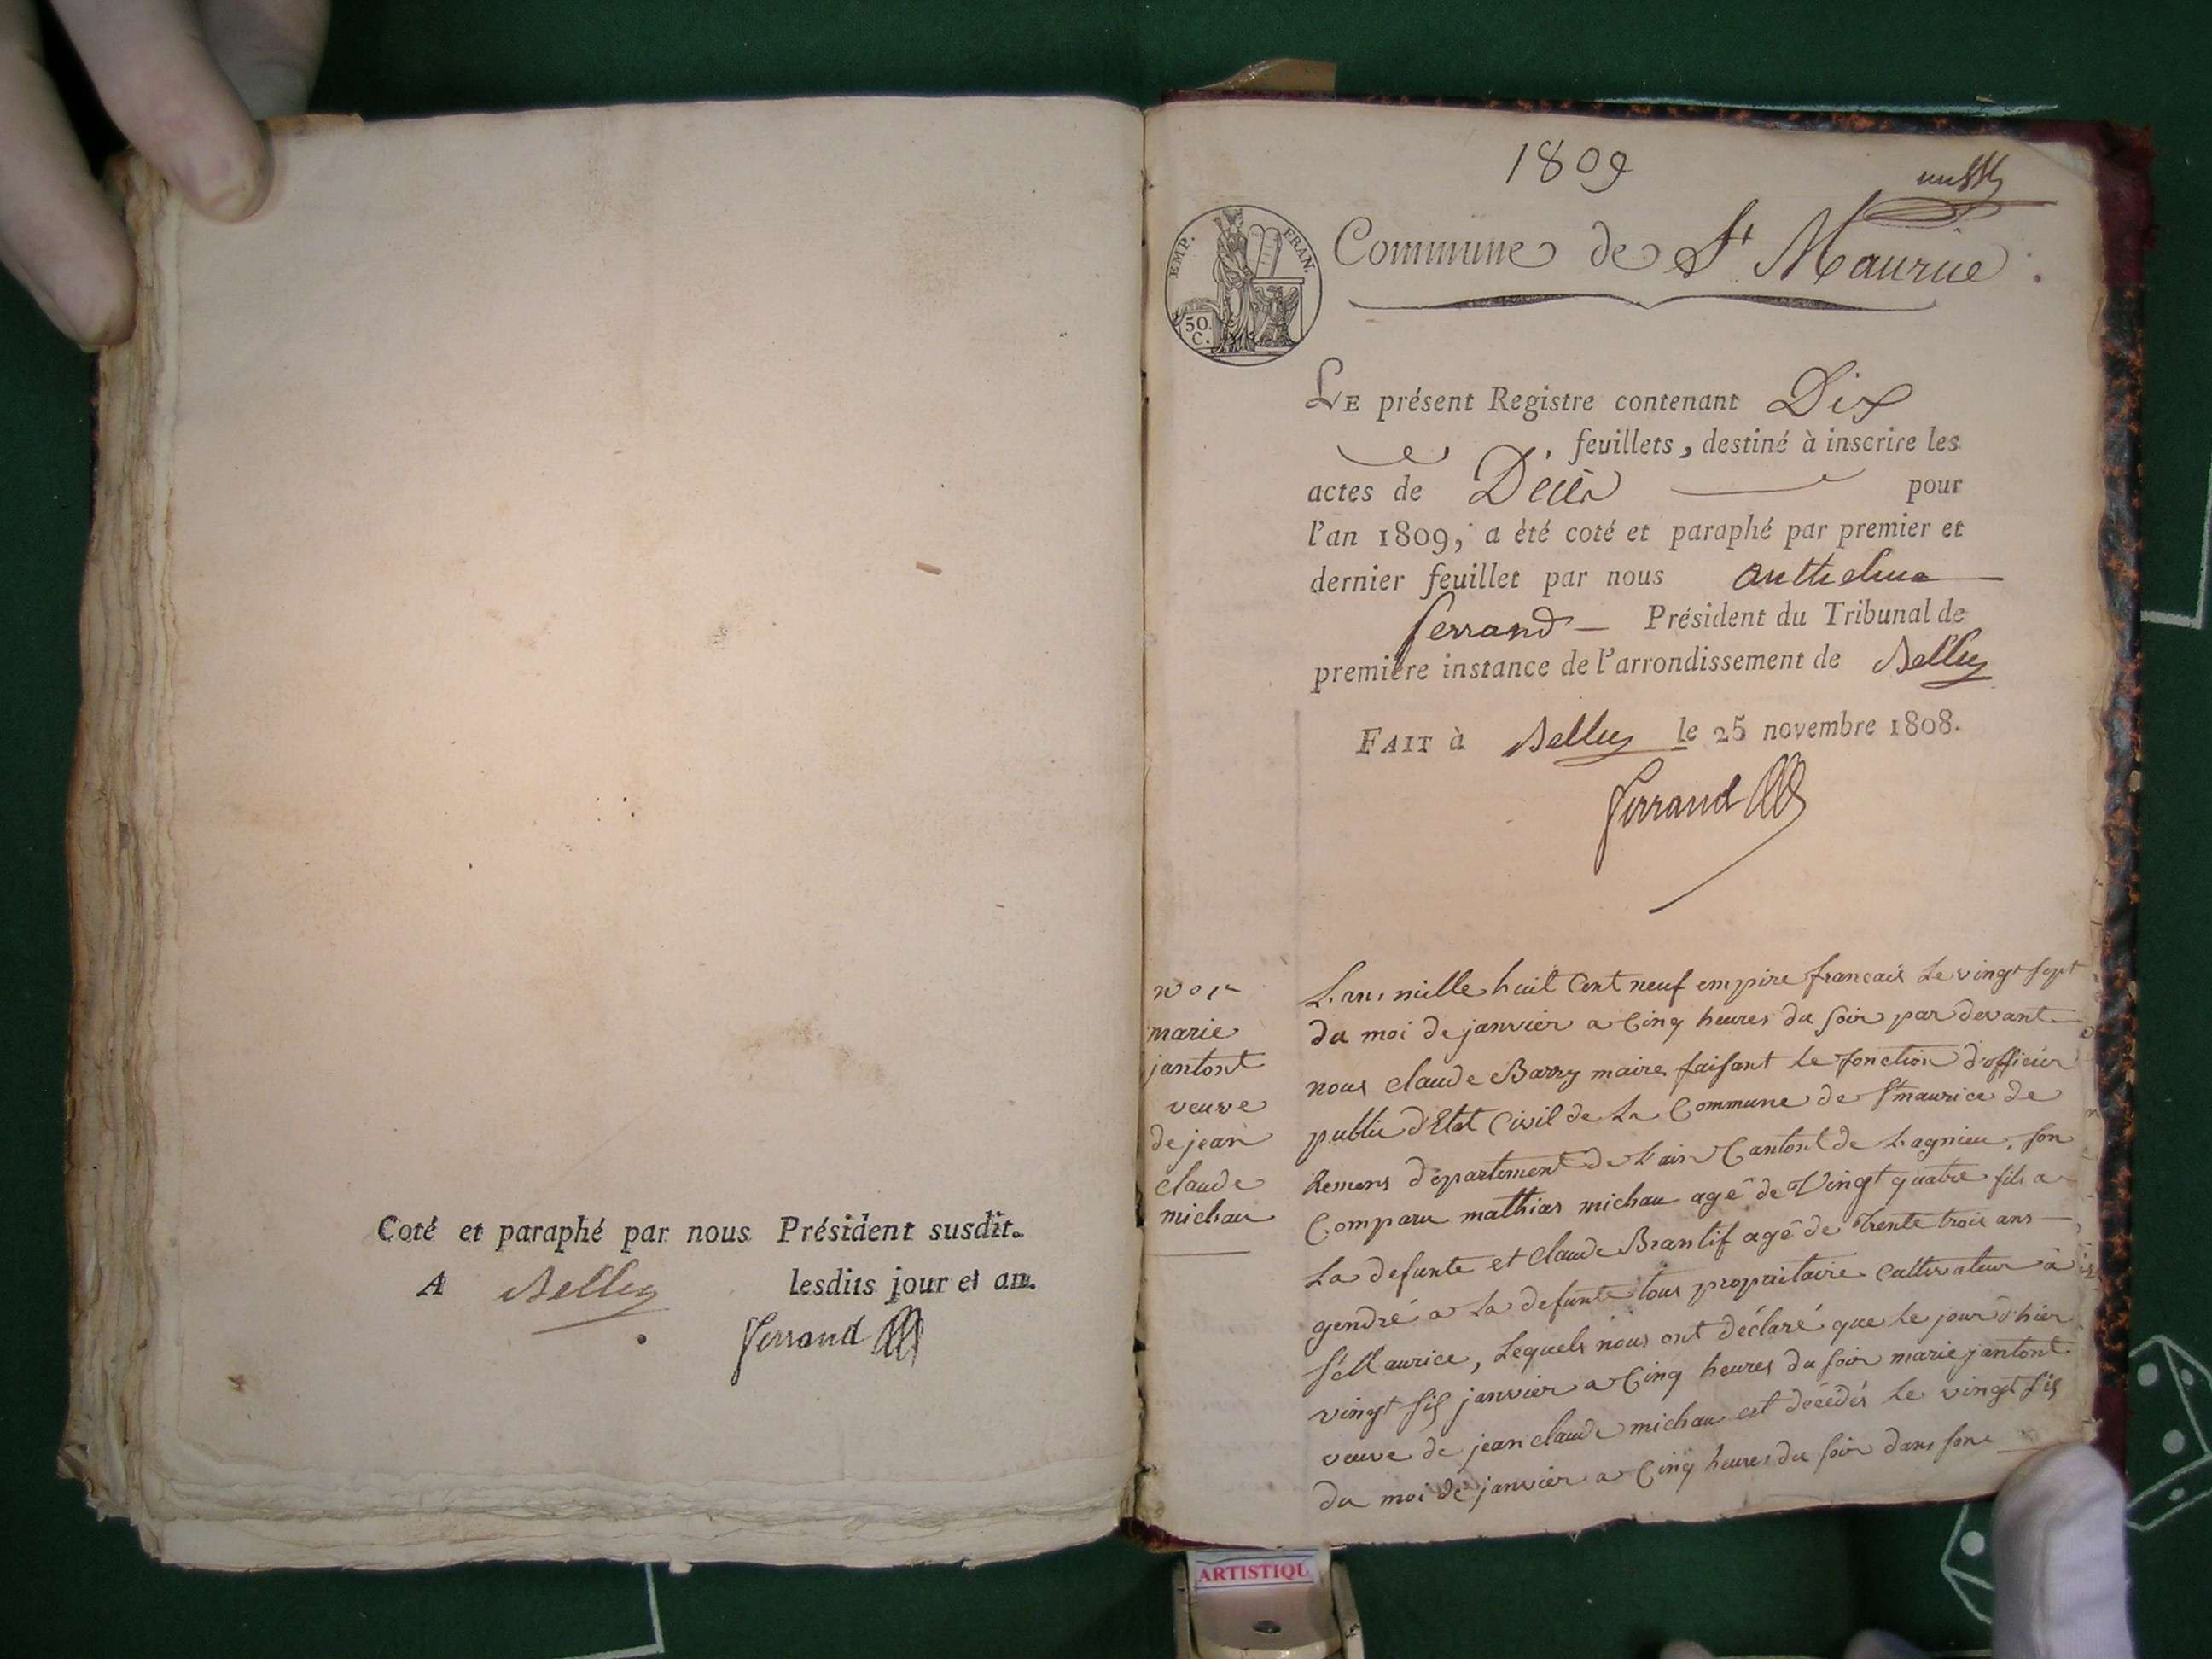 Coté et paraphé par nous Président susdit.
A Belley lesdits jour et an.
Ferrand
1809
Commune de St Maurice
EMP. FRAN.
50.
C.
LE présent Registre contenant Dix
feuillets, destiné à inscrire les
actes de Décès pour
l'an 1809, a été coté et paraphé par premier et
dernier feuillet par nous anthelme
ferrand Président du Tribunal de
première instance de l'arrondissement de Belley
FAIT à Belley le 25 novembre 1808.
Ferrand
marie
jantont
veuve
de jean
claude
michau
L'an mille huit Cent neuf empire francais Le vingt sept
du moi de janvier a Cinq heures du soir par devant
nous claude Barry maire faisant le fonction d'officier
public d'Etat Civil de La Commune de St maurice de
Remens département de L'ain Cantont de Lagnieu, son
Comparu mathias michau agé de Vingt quatre fils a
La defunte et Claude Brantif agé de Trente trois ans
gendré a La defunte tous propriitaire Cultivateur à
St Maurice, Lequels nous ont déclaré que le jour d'hier
vingt six janvier a Cinq heures du soir marie jantont
veuve de jean claude michau est décédés le vingt six
du moi de janvier a Cinq heures du soir dans son
ARTISTIQU